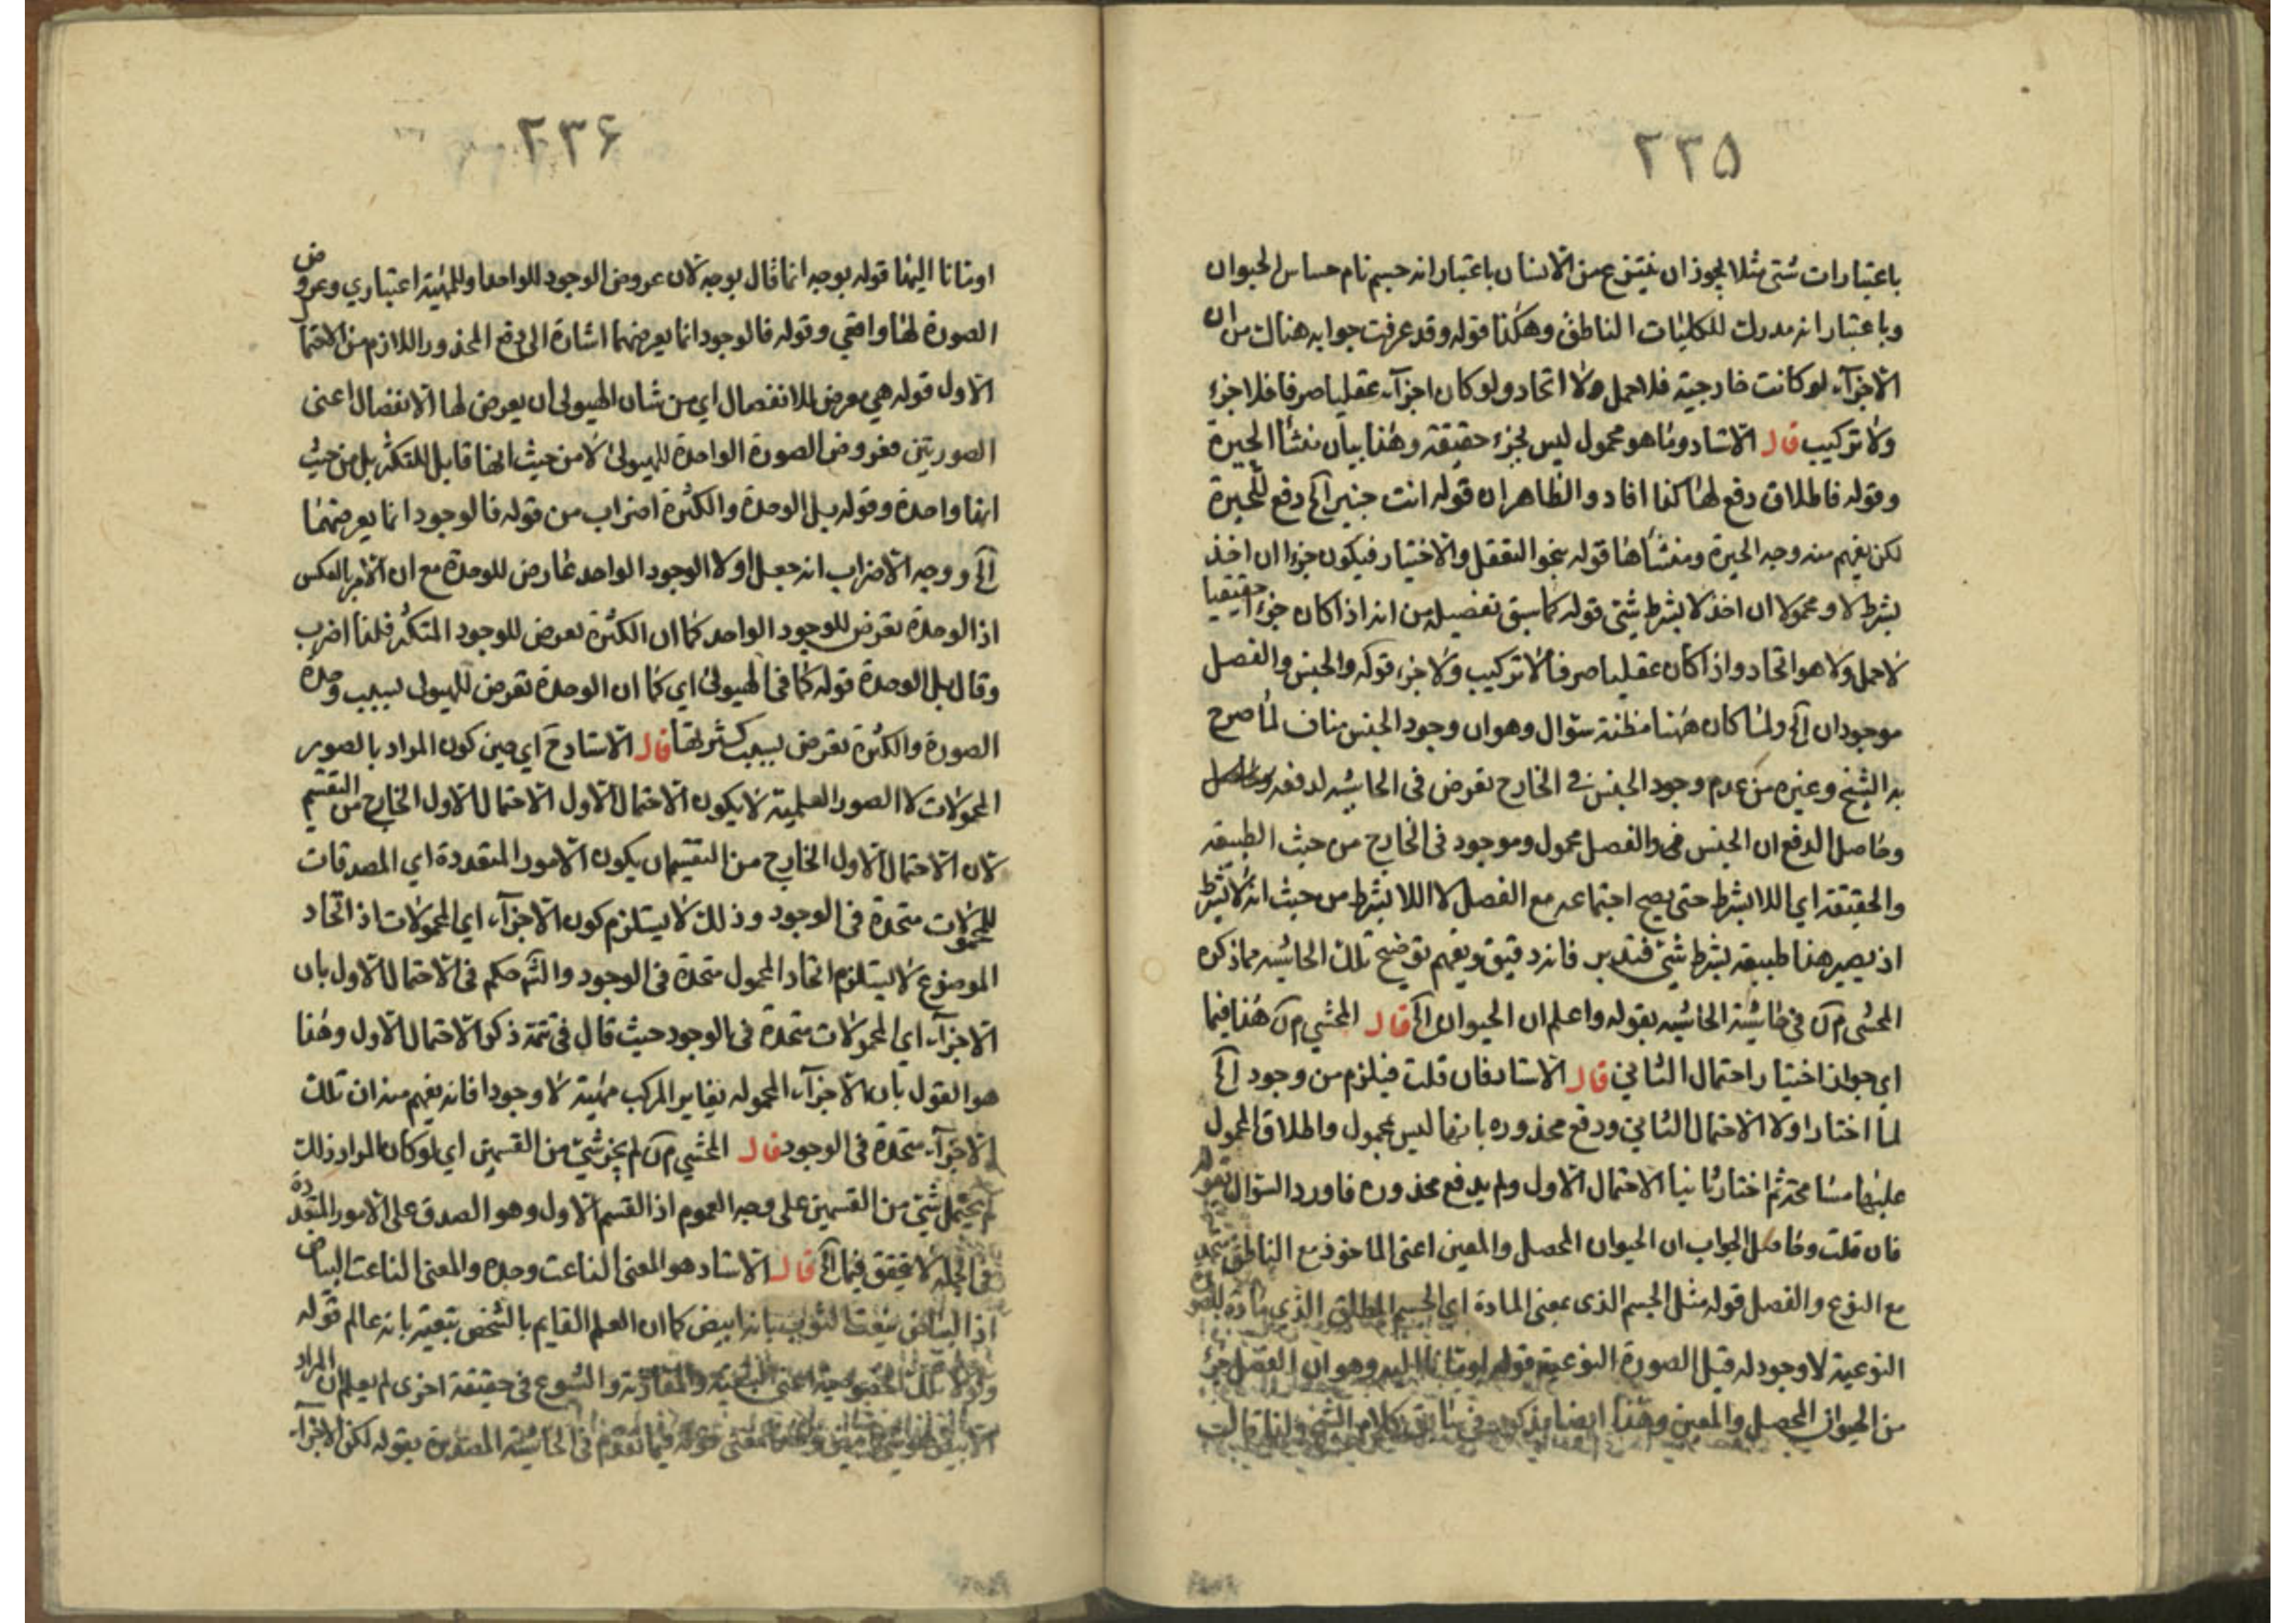 ۲۳۵
باعتبارات شتى مثلا يجوز ان ينتزع من الانسان باعتبار انه جسم نام حساس الحيوان
وباعتبار انه مدرك للكليات الناطق وهكذا قوله وقد عرفت جوابه هناك من ان
الاجزآء لو كانت خارجية فلا حمل ولا اتحاد ولو كان اجزآء عقليا صرفا فلا جزء
ولا تركيب قال الاستاد وما هو محمول ليس بجزء حقيقة وهذا بيان منشأ الحيرة
وقوله فاطلاق دفع لها كذا افاد والظاهر ان قوله انت خبير آه دفع للحيرة
لكن يفهم منه وجه الحيرة ومنشأها قوله بنحو التعقل والاختيار فيكون جزءا ان اخذ
بشرط لا ومحمولا ان اخذ لا بشرط شئ قوله كما سبق تفصيله من انه اذا كان جزءا حقيقيا
لا حمل ولا هو اتحاد واذا كان عقليا صرفا لا تركيب ولا جزء قوله والجنس والفصل
موجودان آه ولما كان ههنا مظنة سؤال وهو ان وجود الجنس مناف لما صرح
به الشيخ وغيره من عدم وجود الجنس في الخارج تعرض فى الحاشيه لدفعه
وحاصل الدفع ان الجنس والفصل محمول وموجود فى الخارج من حيث الطبيعه
والحقيقه اي اللا بشرط حتى يصح اجتماعه مع الفصل لا اللا بشرط من حيث انه لا بشرط
اذ يصير هذا طبيعة بشرط شئ فتدبر فانه دقيق ويفهم توضيح تلك الحاشيه مما ذكره
المحشى في حاشية الحاشيه بقوله واعلم ان الحيوان آه قال المحشي هذا فيما
اي جواز اختيار احتمال الثاني قال الاستاد فان قلت فيلزم من وجود آه
لما اختار اولا الاحتمال الثاني ودفع محذوره بانها ليس بمحمول واطلاق المحمول
عليها مسامحة ثم اختار ثانيا الاحتمال الاول ولم يدفع محذوره فاورد السؤال بقوله
فان قلت وحاصل الجواب ان الحيوان المحصل والمعين اعنى الماخوذ مع الناطق
مع النوع والفصل قوله مثل الجسم الذى بمعنى المادة اي الجسم المطلق الذي مادة للصور
النوعية لا وجود له قبل الصورة النوعية قوله اومأنا اليه وهو ان الفصل جزء
من الحيوان المحصل والمعين وهذا ايضا مذكور في كلام الشيخ ولذا قال
۲۳۶
اومانا اليها قوله بوجه انما قال بوجه لان عروض الوجود للواحد وللمهية اعتباري وعروض
الصورة لها واقعي وقوله فالوجود انما يعرضهما اشارة الى دفع المحذور اللازم من الاحتما
الاول قوله هي معرض للانفصال اي من شان الهيولى ان يعرض لها الانفصال اعنى
الصورتين فعروض الصورة الواحدة للهيولى لا من حيث انها قابل للتكثر بل من حيث
انها واحدة وقوله بل الوحدة والكثرة اضراب من قوله فالوجود انما يعرضهما
آه ووجه الاضراب انه جعل اولا الوجود الواحد عارض للوحدة مع ان الامر بالعكس
اذ الوحدة تعرض للوجود الواحد كما ان الكثرة تعرض للوجود المتكثر فلذا اضرب
وقال بل الوحدة قوله كما فى الهيولى اي كما ان الوحدة تعرض للهيولى بسبب وحدة
الصورة والكثرة تعرض بسبب كثرتها قال الاستاد ح اي حين كون المراد بالصور
المحمولات لا الصور العلمية لا يكون الاحتمال الاول الاحتمال الاول الخارج من التقسيم
لان الاحتمال الاول الخارج من التقسيم ان يكون الامور المتعددة اي المصدقات
للمحمولات متحدة فى الوجود وذلك لا يستلزم كون الاجزآء اي المحمولات اذ اتحاد
الموضوع لا يستلزم اتحاد المحمول متحدة فى الوجود والشم حكم فى الاحتمال الاول بان
الاجزآء اي المحمولات متحدة فى الوجود حيث قال في تتمة ذكر الاحتمال الاول وهذا
هو القول بان الاجزآء المحموله يغاير المركب مهية لا وجودا فانه يفهم منه ان تلك
الاجزآء متحدة فى الوجود قال المحشي لم يجز شئ من القسمين اي لو كان المراد ذلك
لم يحتمل شئ من القسمين على وجه العموم اذ القسم الاول وهو الصدق على الامور المتعددة
فى الجمله لا يتحقق فيها آه قال الاستاد هو المعنى الناعت وحده والمعنى الناعت البياض
اذ البياض ينعت الثوب بانه ابيض كما ان العلم القايم بالشخص ينعته بانه عالم قوله
ولولا تلك الخصوصية اعنى والمقارنة والشيوع فى حقيقة اخرى لم يعلم ان المراد
فيما تقدم فى الحاشية المصدرة بقوله لكن الاجزآء